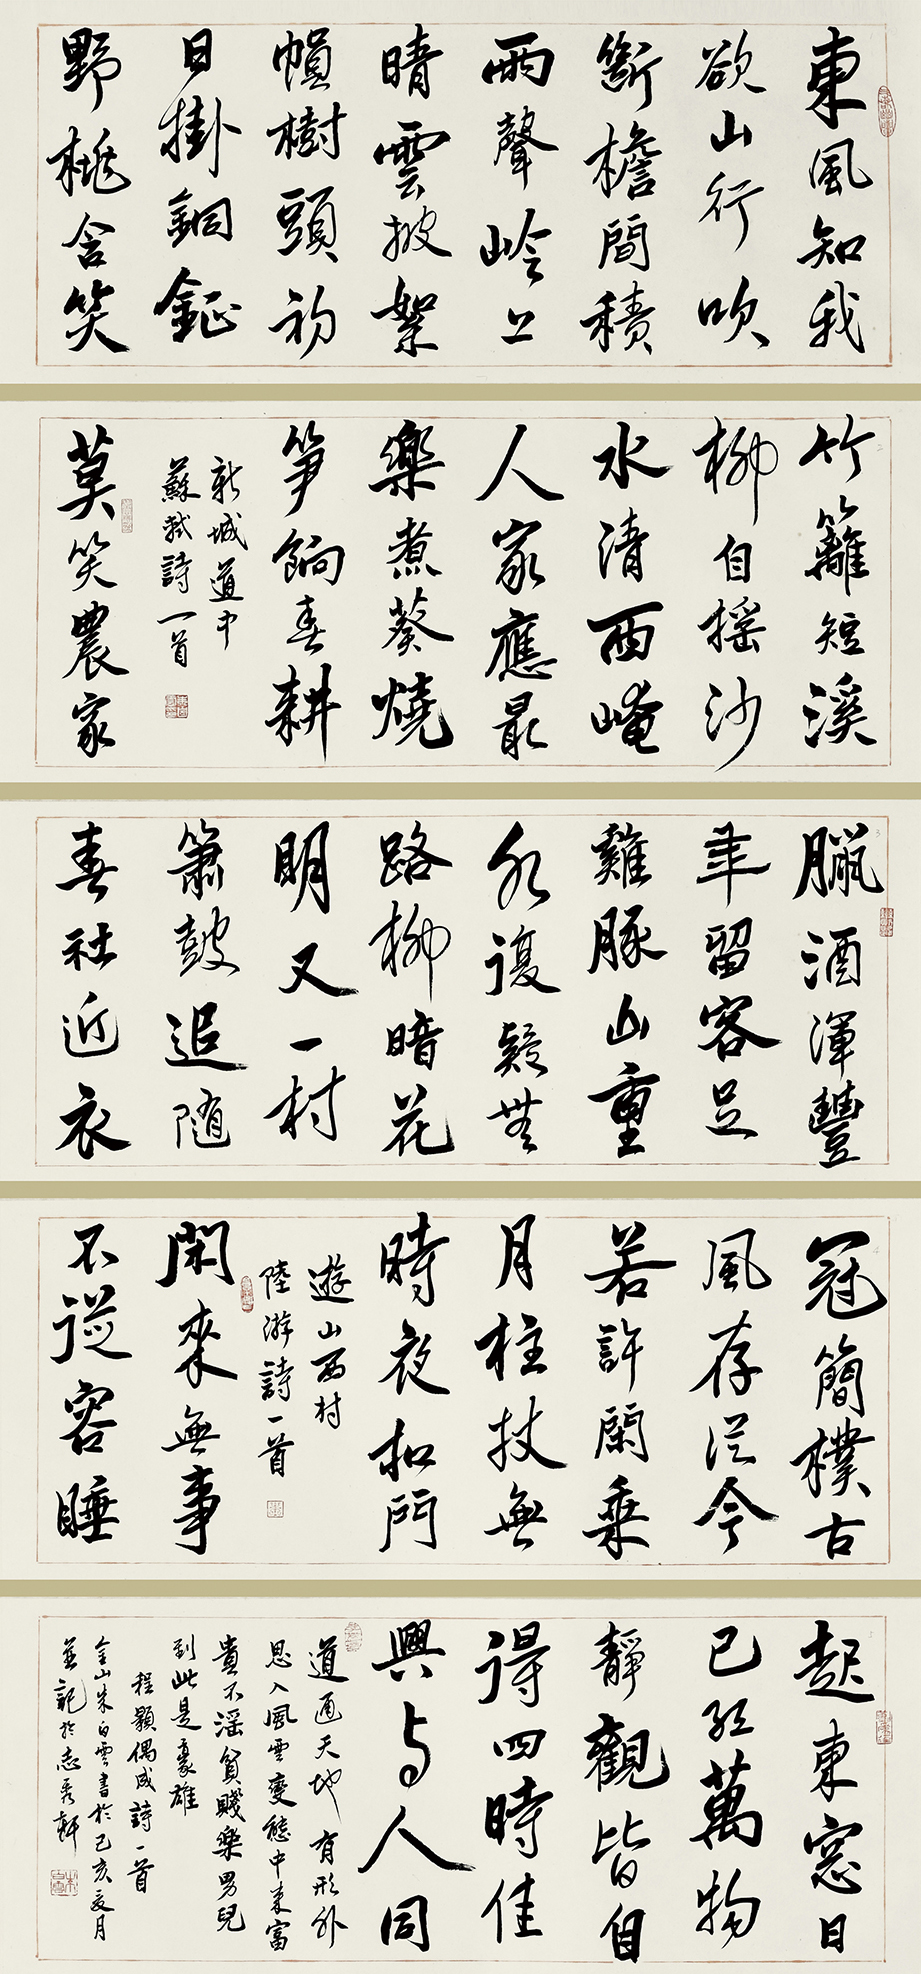 東風知我
欲山行吹
斷檐間積
雨聲嶺上
晴雲披絮
帽樹頭初
日掛銅鉦
野桃含笑
竹籬短溪
柳自摇沙
水清西崦
人家應最
樂煮葵燒
笋餉春耕
新城道中
蘇軾詩一首
莫笑農家
臘酒渾豐
年留客足
雞豚山重
水複疑無
路柳暗花
明又一村
簫鼓追隨
春社近衣
冠簡樸古
風存從今
若許閑乘
月柱杖無
時夜扣門
遊山西村
陸游詩一首
閑來無事
不從容睡
起東窓日
已紅萬物
靜觀皆自
得四時佳
興与人同
道通天地有形外
思入風雲變態中東富
貴不淫貧賤樂男兒
到此是豪雄
程顥偶成詩一首
金山朱白雲書於己亥夏月
並記於志秀軒